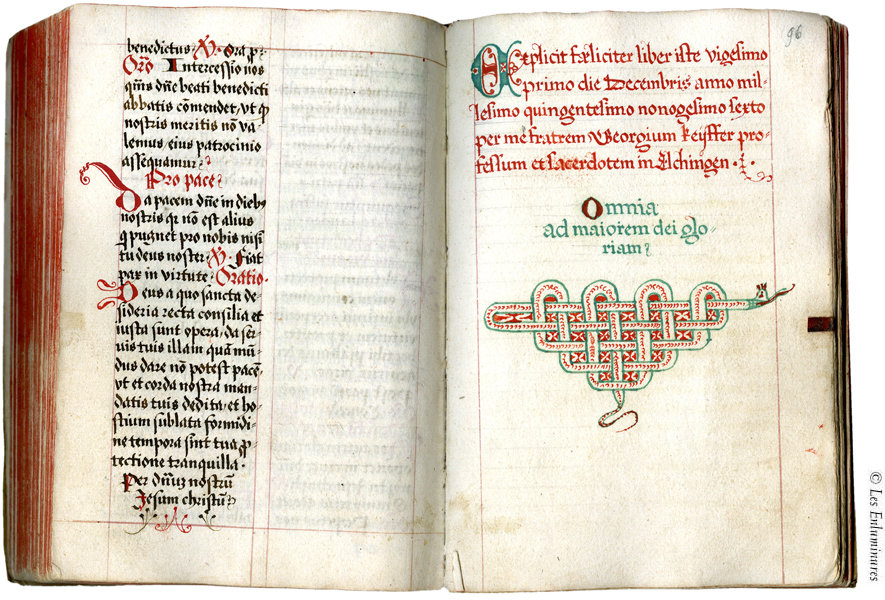 benedictus· V. Ora p̄·
Orō Intercessio nos
qm̄s dn̄e beati benedicti
abbatis cōmendet, vt qd
nostris meritis nō va-
lemus, eius patrocinio
assequamur
Pro pace
Da pacem dn̄e in dieb9
nostris qr nō est alius
q pugnet pro nobis nisi
tu deus noster· V. Fiat
pax in virtute· Oratio·
Deus a quo sancta de-
sideria recta consilia et
iusta sunt opera, da ser-
vis tuis illam quā mū-
dus dare nō potest pacē
vt et corda nostra man-
datis tuis dedita, et ho-
stium sublata formidi-
ne tempora sint tua p̄-
tectione tranquilla·
Per dn̄m nostrū
Jesum christū
96
Explicit fæliciter liber iste vigesimo
primo die Decembris anno mil-
lesimo quingentesimo nonogesimo sexto
per me fratrem Georgium Keysser pro-
fessum et sacerdotem in Elchingen·
Omnia
ad maiorem dei glo-
riam
© Les Enluminures